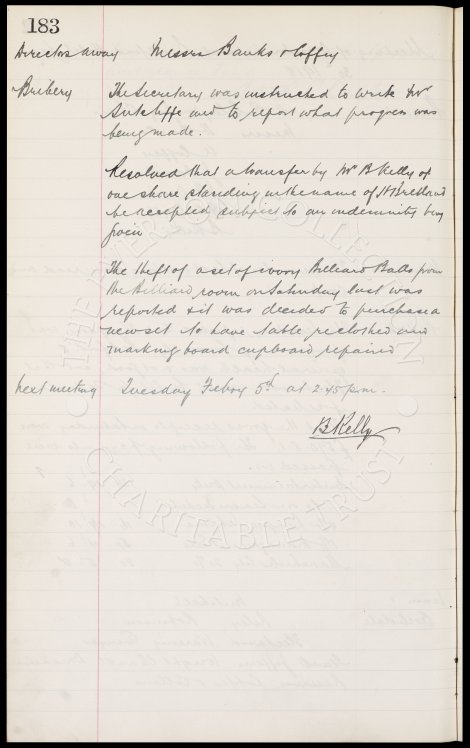 183
Directors away Messrs Banks & Coffey
Bribery The Secretary was instructed to write Mr
Sutcliffe and to report what progress was
being made.
Resolved that a transfer by Mr B Kelly of
one share standing in the name of H Bretland
be accepted subject to an indemnity being
given
The theft of a set of ivory Billiard Balls from
the Billiard room on Saturday last was
reported & it was decided to purchase a
new set to have table reclothed and
marking board cupboard repaired
Next meeting Tuesday Febry 5th at 2.45 pm.
B Kelly
CHARITABLE TRUST